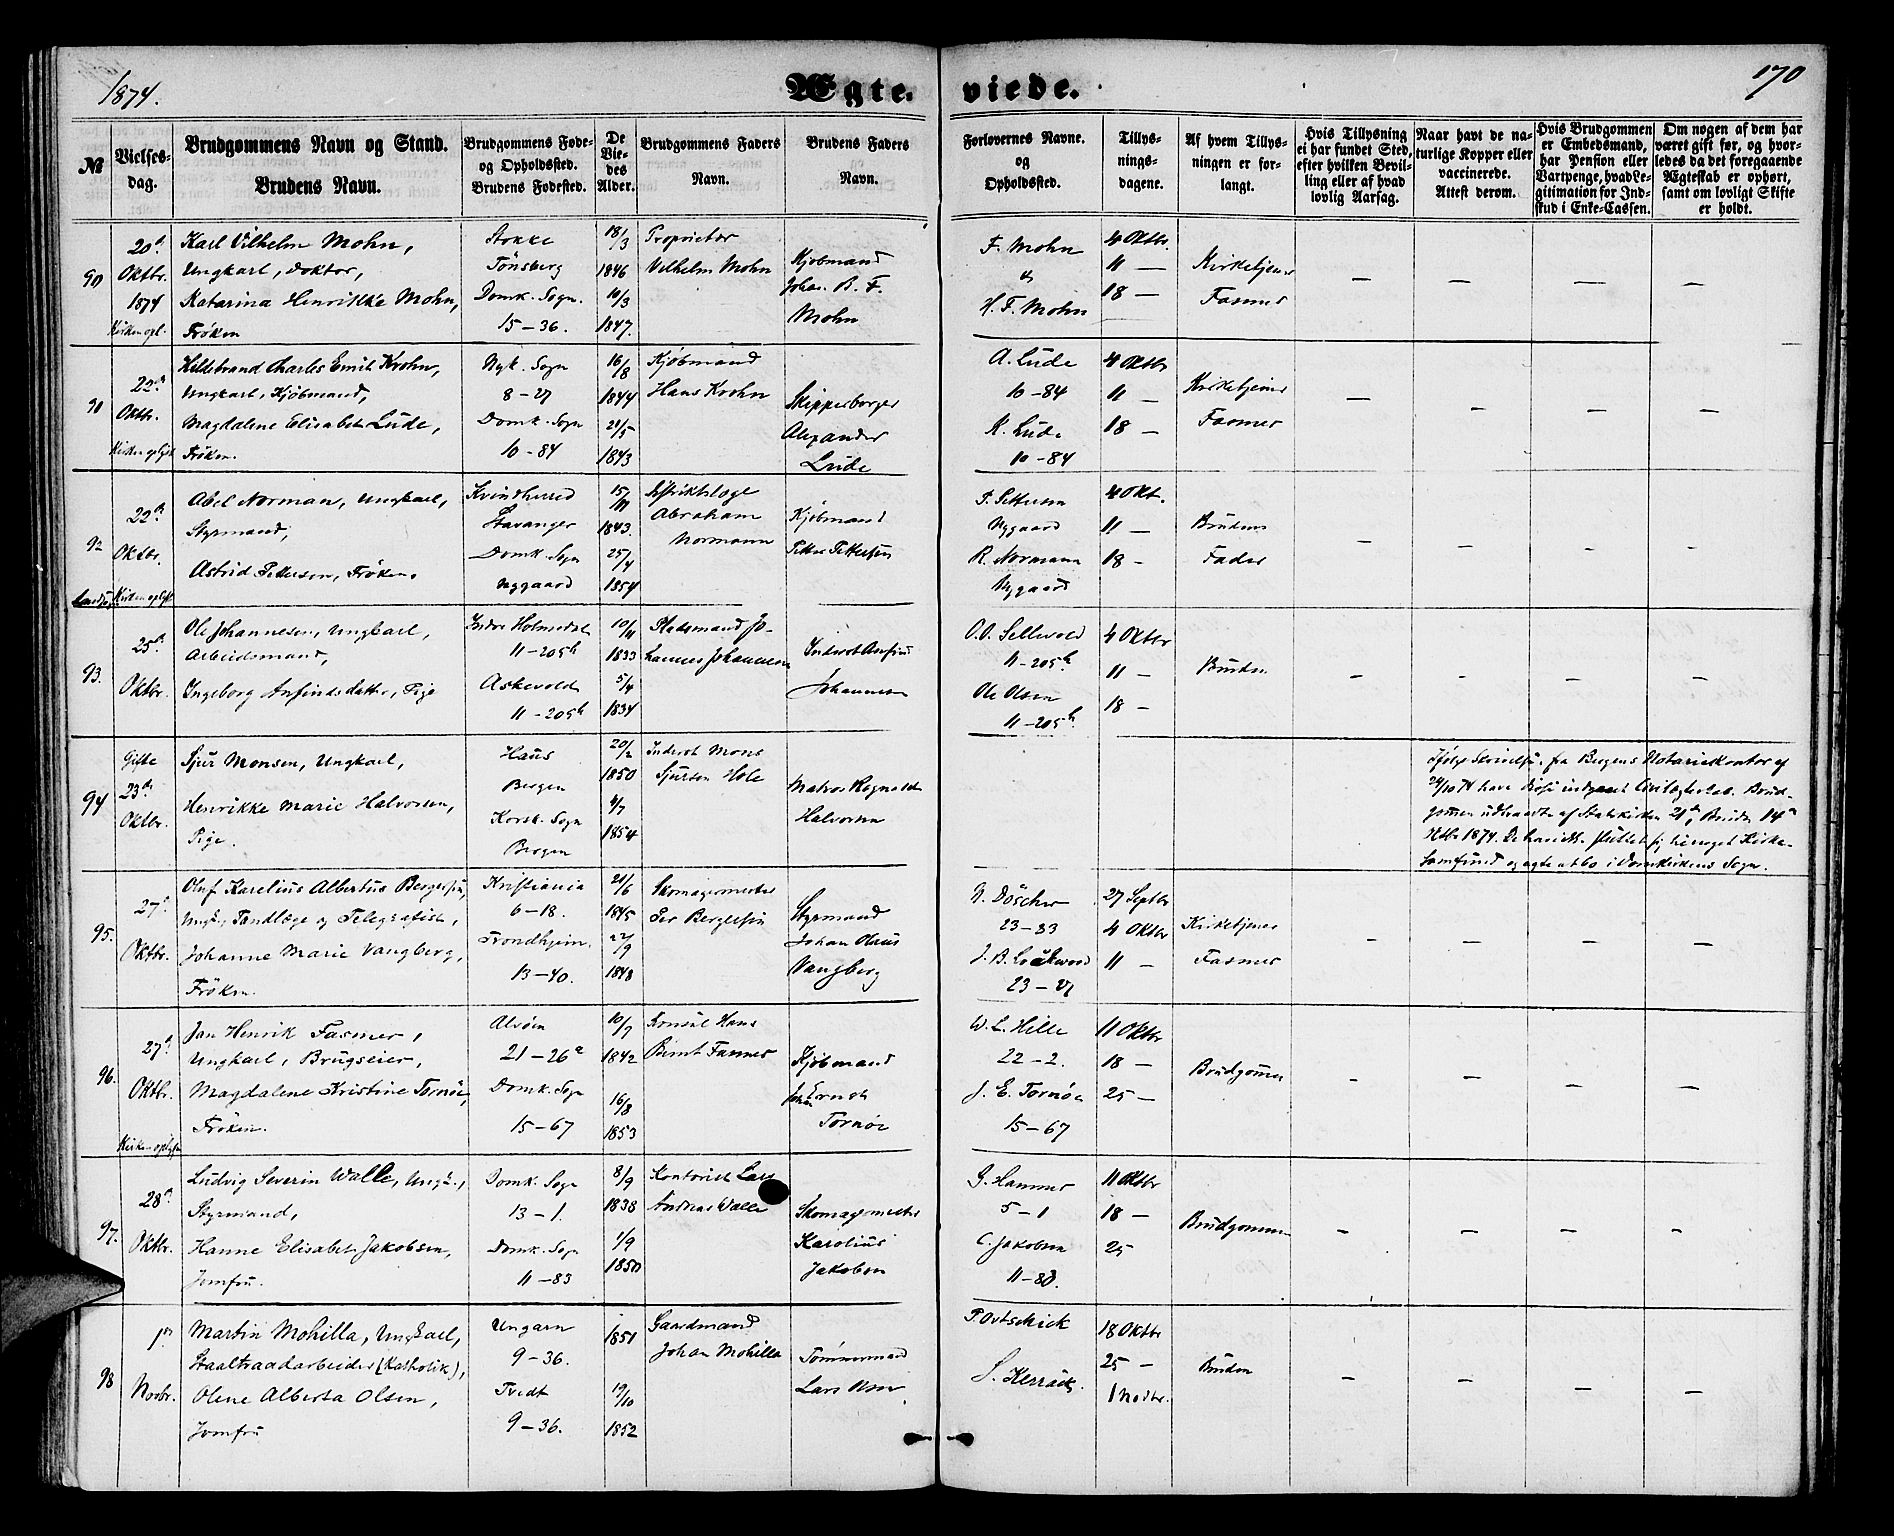 1874.
Ægte- viede.
170
№
Vielses-
dag.
Brudgommens Navn og Stand.
Brudens Navn.
Brudgommens Føde-
og Opholdssted.
Brudens Fødested.
De
Vie-
des
Alder.
Brudgommens Faders
Navn.
Brudens Faders
Navn.
Forlovernes Navne.
og
Opholdssted.
Tillys-
nings-
dagene.
Af hvem Tillys-
ningen er for-
langt.
Hvis Tillysning
ei har fundet Sted,
efter hvilken Bevil-
ling eller af hvad
lovlig Aarsag.
Naar havt de na-
turlige Kopper eller
vaccinerede.
Attest derom.
Hvis Brudgommen
er Embedsmand,
har Pension eller
Vartpenge, hvad Le-
gitimation for Ind-
skud i Enke-Cassen.
Om nogen af dem har
været gift før, og hvor-
ledes da det foregaaende
Ægteskab er ophørt,
samt om lovligt Skifte
er holdt.
90
20de
Oktbr.
1874
Kirken opl.
Karl Vilhelm Mohn,
Ungkarl, Doktor,
Katarina Henrikke Mohn,
Frøken
Stokke
Tönsberg
Domk. Sogn.
15-36.
18/3
1846
10/3
1847.
Proprietær
Vilhelm Mohn
Kjøbmand
Johan B. F.
Mohn
F. Mohn
&
H. F. Mohn
4 Oktbr.
11 —
18 —
Kirketjener
Fasmer
91
22de
Oktbr.
Kirken oplyst
Hildebrand Charles Emil Krohn,
Ungkarl, Kjøbmand,
Magdalene Elisabet Lude,
Frøken.
Nyk. Sogn
8-27
Domk. Sogn
10-84
16/8
1844
21/5
1843
Kjøbmand
Hans Krohn
Skipperborger
Alexander
Lude
A. Lude
10-84
K. Lude
10-84
4 Oktbr
11 —
18 —
Kirketjener
Fasmer
92
22de
Oktbr.
Kirken oplyst
Abel Norman, Ungkarl,
Styrmand,
Astrid Pettersen, Frøken.
Kvindherred
Stavanger
Domk. Sogn
Nygaard
15/11
1843.
25/4
1854
Distriktslæge
Abraham
Normann
Kjøbmand
Petter Pettersen
P. Pettersen
Nygaard
R. Normann
Nygaard
4 Okt.
11 —
18 -
Brudens
Fader
93.
25de
Oktbr.
Ole Johannesen, Ungkarl,
Arbeidsmand,
Ingeborg Anfindsdatter, Pige
Indre Holmedal
11-205b
Askevold
11-205b
10/11
1833
5/4
1834
Pladsmand Jo-
hannes Johannesen
Inderst Anfind
Johannesen
O.O. Sellevold
11-205b
Ole Olsen
11-205b.
4 Oktbr
11 —
18 —
Bruden
94
Gifte
23de
Oktbr.
Sjur Monsen, Ungkarl,
Henrikke Marie Halvorsen,
Pige.
Haus
Bergen
Korsk. Sogn
Bergen
20/2
1850
4/7
1854
Inderst Mons
Sjursen Hole
Matros Regnald
Halvorsen
Ifølge Skrivelse fra Bergens Notariekontor af
24/10 74 have Disse indgaaet Civilægteskab. Brud-
gommen udtraadte af Statskirken 21de, Bruden 14de
Oktbr 1874. De have ikke sluttet sig til noget Kirke-
samfund og agte at bo i Domkirkens Sogn.
95.
27de
Oktbr.
Oluf Karelius Albertus Bergersen,
Ungk., Tandlæge og Telegrafist,
Johanne Marie Vangberg,
Frøken.
Kristiania
6-18.
Trondhjem.
13-40.
21/6
1845
22/9
1848
Skomagermester
Per Bergersen
Styrmand
Johan Olaus
Vangberg
N. Döscher
23-83
J. B. Lockwood
23-27
27 Septbr
4 Oktbr
11 —
Kirketjener
Fasmer
96.
27de
Oktbr.
Kirken oplyst
Jan Henrik Fasmer,
Ungkarl, Brugseier,
Magdalene Kristine Tornöe,
Frøken.
Alvøen
21-26a
Domk. Sogn
15-67
10/7
1842
16/8
1853
Konsul Hans
Berent Fasmer
Kjøbmand
Johan Ernst
Tornöe
W. L. Hille
22-2.
J. E. Tornöe
15-67
11 Oktbr
18 —
25 —
Brudgommen
97.
28de
Oktbr.
Ludvig Severin Walle, Ungk.,
Styrmand,
Hanne Elisabet Jakobsen,
Jomfru.
Domk. Sogn
13-1.
Domk. Sogn
11-83
8/9
1838
1/9
1850
Kontorist Lars
Andreas Walle
Skomagermester
Karolius
Jakobsen
G. Hammer
5-1
C. Jakobsen
11-83.
11 Oktbr
18 —
25
Brudgommen
98
1ste
Novbr.
Martin Mohilla, Ungkarl,
Staaltraadarbeider (Katholik),
Olene Alberta Olsen,
Jomfru
Ungarn
9-36.
Tvedt
9-36.
1851
19/10
1852
Gaardmand
Johan Mohilla
Tømmermand
Lars Olsen
P. Ovtschick
S. Kerrack
18 Oktbr
25 —
1 Novbr.
Bruden